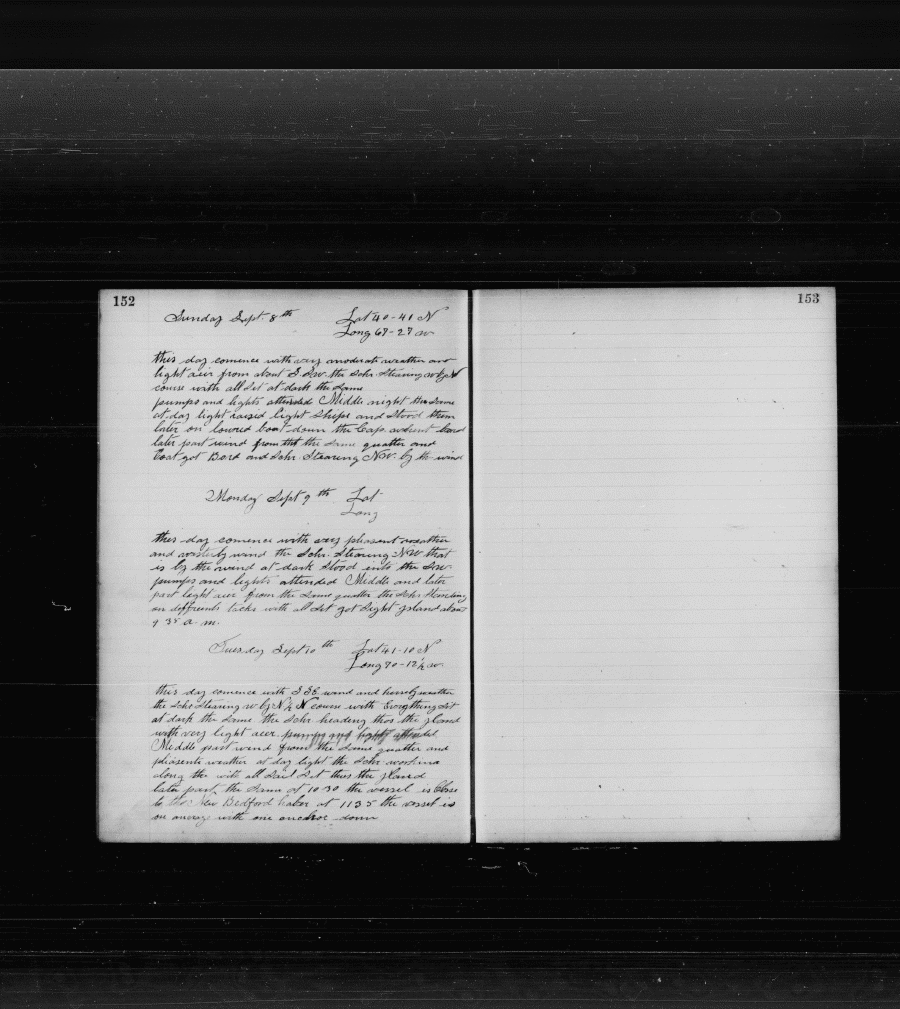 152
Sunday Sept. 8th Lat 40-41 N
Long 69-27 w
this day comence with very moderate weather and
light aeir from about S.Sw. the Schr. Stearing w by N
course with all Set at dark the Same
pumps and lights attended Middle night the Same
at day light raised light Ships and Stood them
later on lowred boat down the Cap. went bord
later part wind from the Same quatter and
boat got Bord and Schr. Stearing Nw. by the wind
Monday Sept 9th Lat
Long
this day comence with very pleasent weather
and westerly wind the Schr. Stearing NW that
is by the wind at dark Stood into the Sw
pumps and lights attended Middle and later
part light aeir from the Same quatter the Schr Standing
on deffrents tacks with all Set got Sight Island about
9 35 a.m.
Tuesday Sept 10th Lat 41-10 N
Long 70-12½ w
this day comence with S SE wind and weather
the Schr Stearing w by N ½ N course with Everything Set
at dark the Same the Schr heading the Island
with very light aeir pumps and lights attended
Middle part wind from the Same quatter and
pleasents weather at day light the Schr working
along the with all Sail Set the Island
later part the Same at 10 30 the vessel is Close
to the New Bedford haber at 11 35 the vessel is
on with one anchor down
153